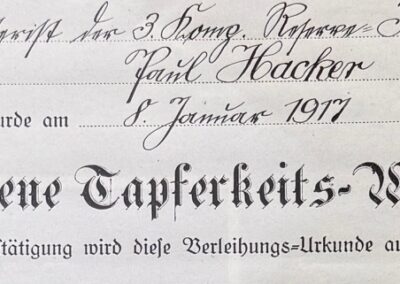 erist der 3. Komp. Reserve=I
Paul Hacker
urde am 8. Januar 1917
ene Tapferkeits=M
stätigung wird diese Verleihungs=Urkunde au